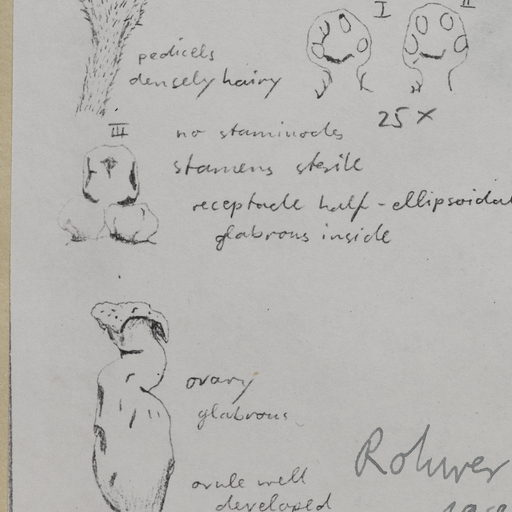 I II
pedicels
densely hairy
25 x
III
no staminodes
stamens sterile
receptacle half-ellipsoidal
glabrous inside
ovary
glabrous
Rohwer
ovule well
developed